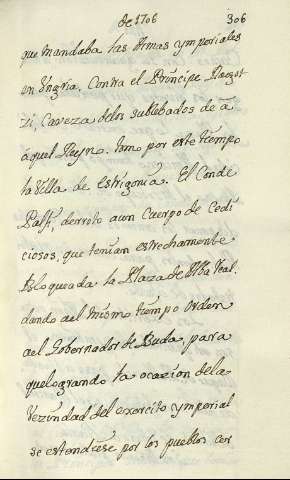 de 1706 306
que mandaba las Armas ymperiales
en Vngria, Contra el Principe Ragot
zi, Caveza delos sublebados de a
aquel Reyn. tomo por este tiempo
la Villa de estrigonia. El Conde
Palfi, derroto aun Cuerpo de Cedi
ciosos, que tenian estrechamente
bloqueada la Plaza de Alba Real.
dando al mismo tiempo orden
al Gobernador de Buda, para
que logrando la ocazion dela
Vezindad del exercito ymperial
se estendiese por los pueblos cer